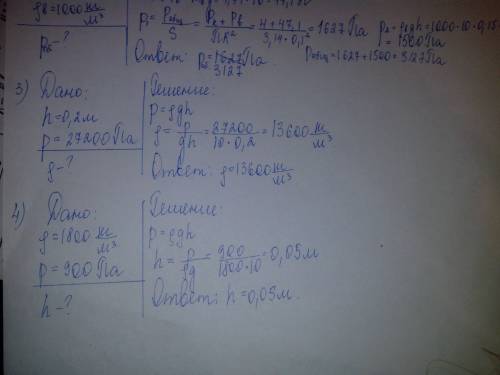 ρв=1000 кг/м³
Pв-?
P₁=Pобщ/S=(P₂+Pв)/ПR²=(4+47,1)/(3,14·0,1²)=1627 Па
P₂=ρgh=1000·10·0,15=1500 Па
Pобщ=1627+1500=3127 Па
Ответ: 3127 Па.
3) Дано:
h=0,2м
p=27200 Па
ρ-?
Решение:
p=ρgh
ρ=p/gh=27200/(10·0,2)=13600 кг/м³
Ответ: ρ=13600 кг/м³
4) Дано:
ρ=1800 кг/м³
p=900 Па
h-?
Решение:
p=ρgh
h=p/ρg=900/(1800·10)=0,05м
Ответ: h=0,05м.